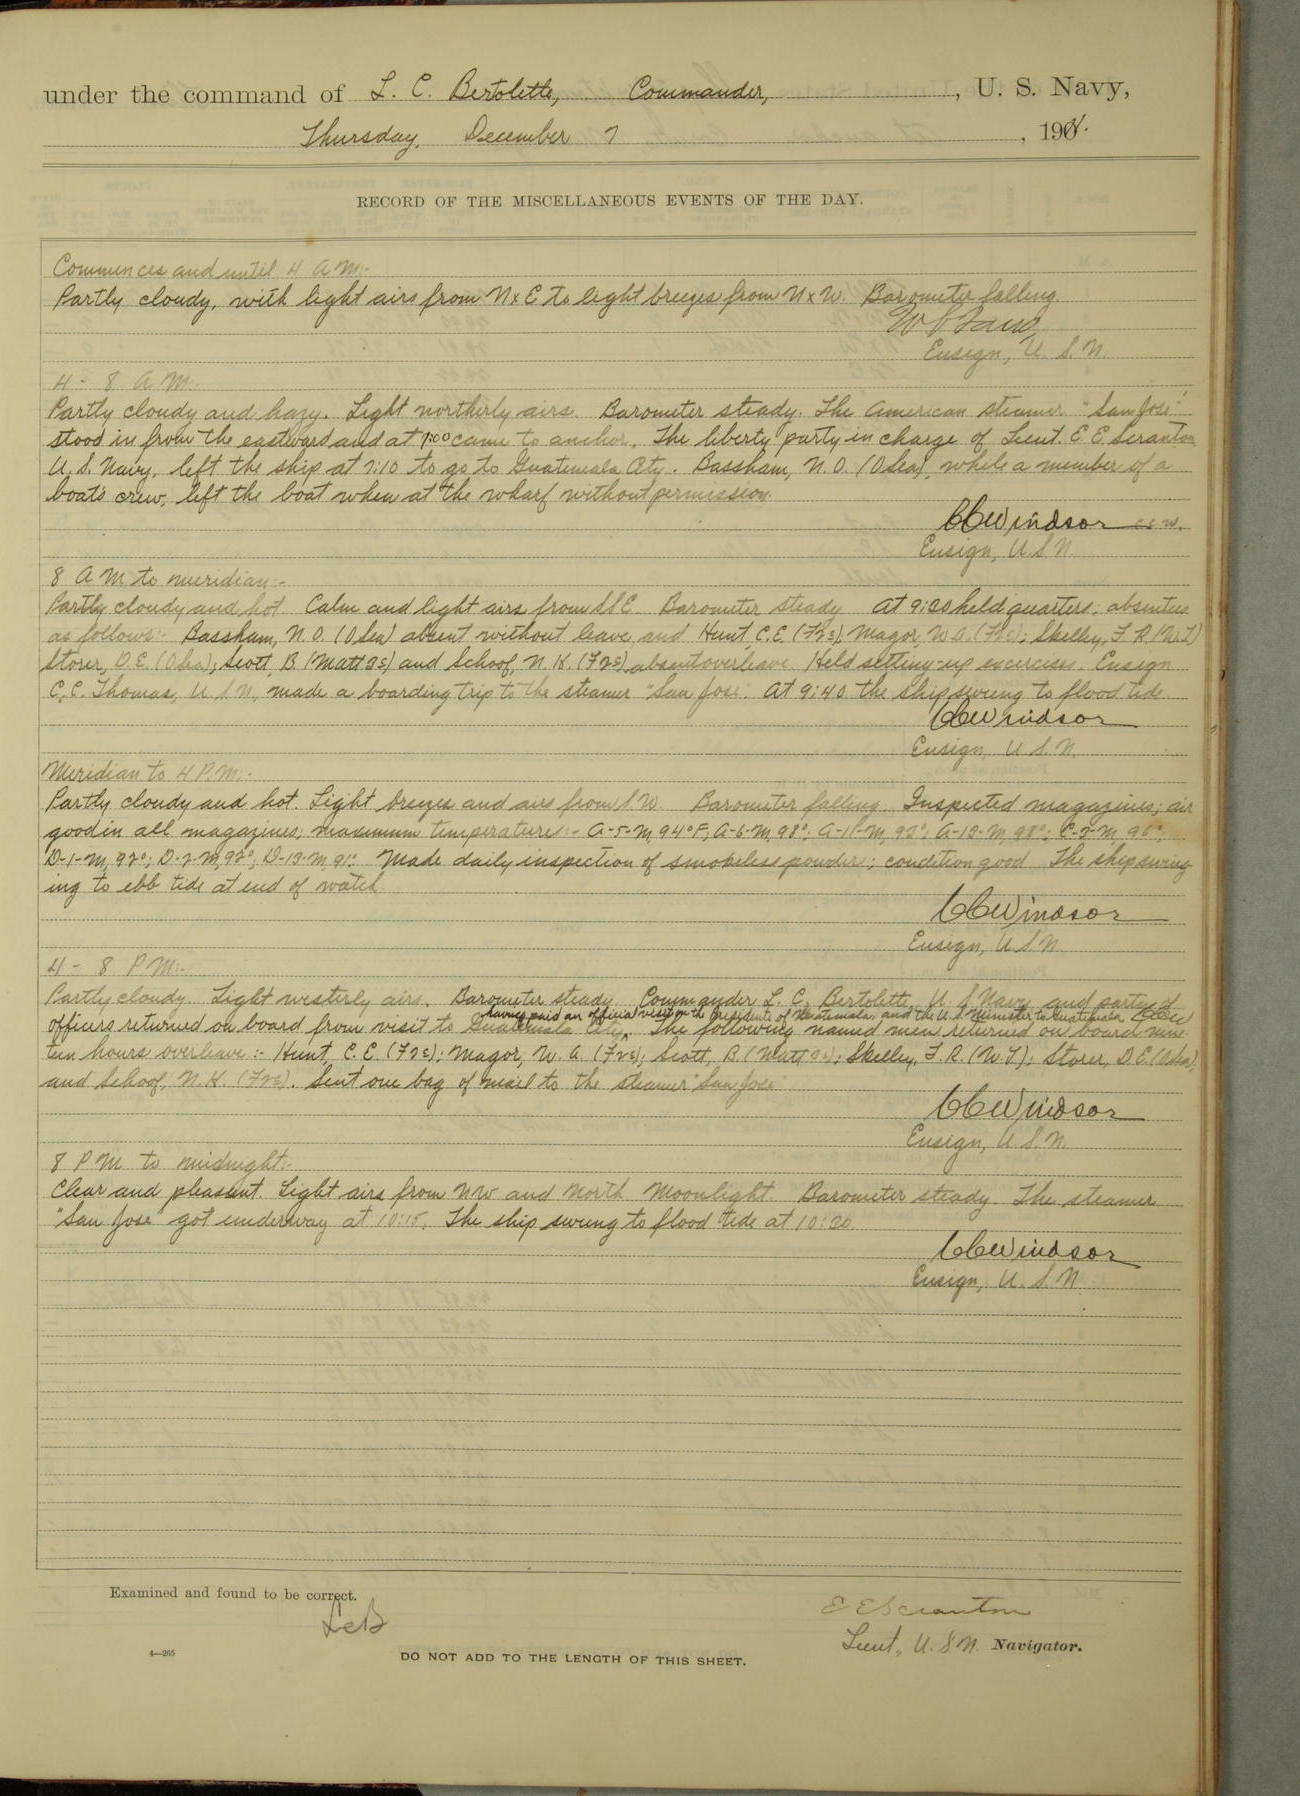 under the command of L. C. Bertolette, Commander, , U. S. Navy,
Thursday, December 7 , 190
RECORD OF THE MISCELLANEOUS EVENTS OF THE DAY.
Commences and until 4 A.M:-
Partly cloudy, with light airs from NxE to light breezes from NxW. Barometer falling.
Ensign, U. S. N.
4 - 8 A.M:-
Partly cloudy and hazy. Light northerly airs. Barometer steady. The American steamer "San Jose"
stood in from the eastward and at 7:00 came to anchor. The liberty party in charge of Lieut. E. E. Scranton,
U. S. Navy, left the ship at 7:10 to go to Guatemala City. Bassham, N. O. (O Sea), while a member of a
boat's crew, left the boat when at the wharf without permission.
CC Windsor C.C.W.
Ensign, U. S. N.
8 A M to meridian:-
Partly cloudy and hot. Calm and light airs from SSE. Barometer steady. At 9:20 held quarters; absentees
as follows:- Bassham, N. O. (O Sea) absent without leave, and Hunt, C. E. (F2c); Magor, W. A. (F2c); Skelley, F. R. (W.T.)
Storer, D. E. (O Sea); Scott, B (Matt 3c) and Schoof, N. K. (F2c) absent overleave. Held setting-up exercises. Ensign
C. C. Thomas, U. S. N., made a boarding trip to the steamer "San Jose". At 9:40 the ship swung to flood tide.
CC Windsor
Ensign, U. S. N.
Meridian to 4 P.M:-
Partly cloudy and hot. Light breezes and airs from S.W. Barometer falling. Inspected magazines; air
good in all magazines; maximum temperatures:- A-5-M, 94°F; A-6-M, 98°; A-11-M, 92°; A-12-M, 98°; C-2-M, 96°;
D-1-M, 92°; D-2-M, 92°; D-12-M, 91°. Made daily inspection of smokeless powder; condition good. The ship swing-
ing to ebb tide at end of watch.
CC Windsor
Ensign, U. S. N.
4 - 8 P M:-
Partly cloudy. Light westerly airs. Barometer steady. Commander L. C. Bertolette, U. S. Navy and party of
having paid an official visit on the President of Guatemala, and the U.S. Minister to Guatemala
officers returned on board from visit to Guatemala City. The following named men returned on board nine-
teen hours overleave:- Hunt, C. E. (F2c); Magor, W. A. (F2c); Scott, B. (Matt 3c); Skelley, F. R. (W.T.); Storer, D E. (O Sea);
and Schoof, N. K. (F2c). Sent one bag of mail to the steamer "San Jose"
CC Windsor
Ensign, U. S. N.
8 P M to midnight:-
Clear and pleasant. Light airs from NW and North. Moonlight. Barometer steady. The steamer
"San Jose" got underway at 10:15. The ship swung to flood tide at 10:20
CC Windsor
Ensign, U. S. N.
Examined and found to be correct.
LCB
E E Scranton
Lieut., U. S. N. Navigator.
4—265
DO NOT ADD TO THE LENGTH OF THIS SHEET.